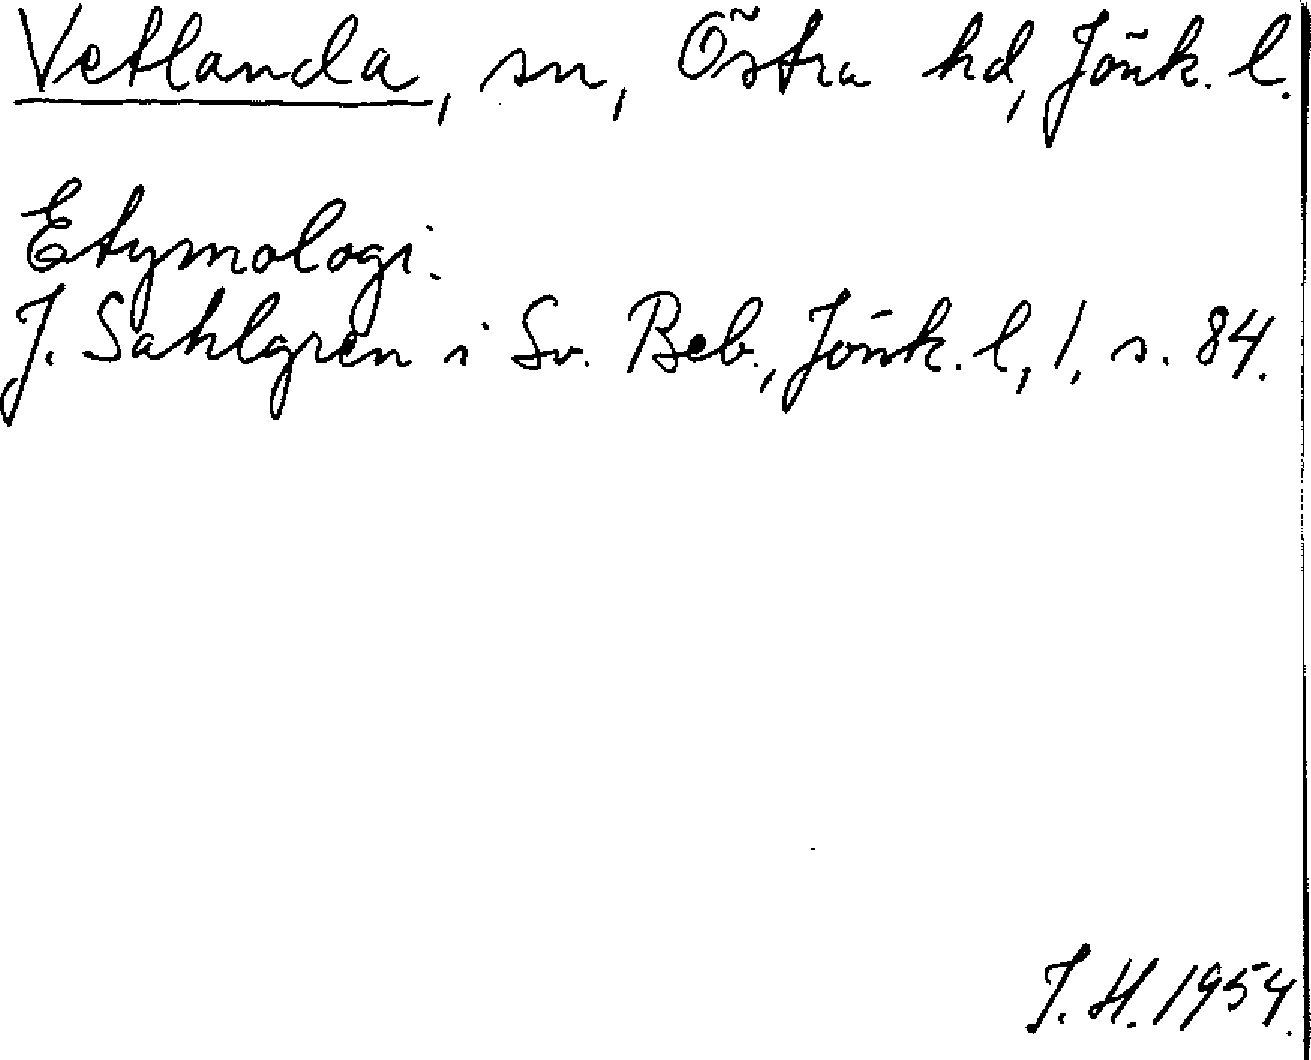 Vetlanda, sn, Östra hd, Jönk. l.
Etymologi:
J. Sahlgren i Sv. Beb., Jönk. l, 1, s. 84.
J. H. 1954.